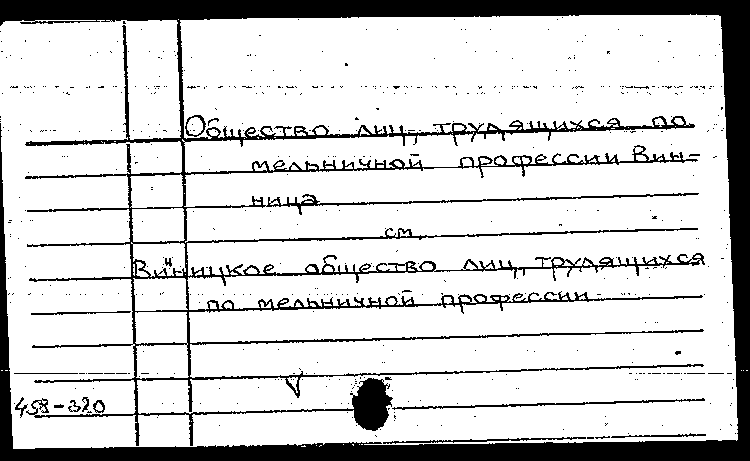 Общество лиц, трудящихся по
мельничной профессии Вин-
ница
см.
Винницкое общество лиц, трудящихся
по мельничной профессии
V
458-320